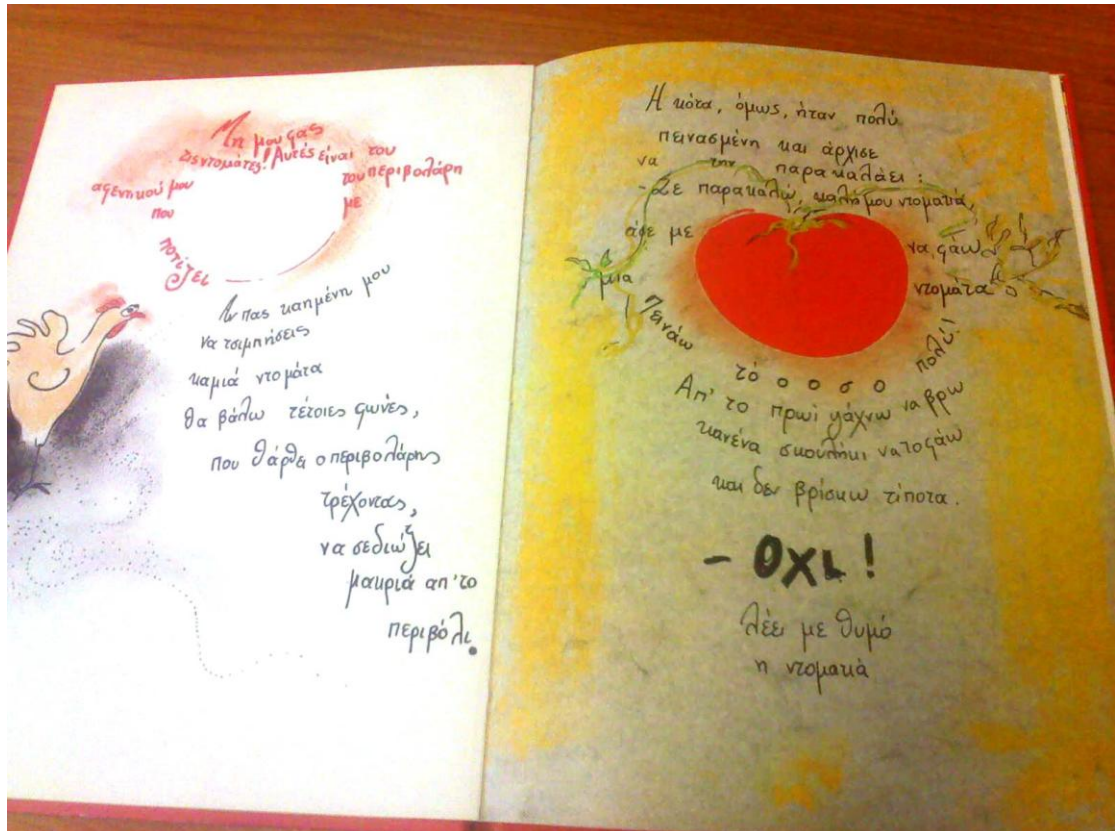 Μη μου φας
τις ντομάτες! Αυτές είναι του
αφεντικού μου
του περιβολάρη
που
με
ποτίζει
Αν πας καημένη μου
να τσιμπήσεις
καμιά ντομάτα
θα βάλω τέτοιες φωνές,
που θάρθει ο περιβολάρης
τρέχοντας,
να σε διώξει
μακριά απ'το
περιβόλι.
Η κότα, όμως, ήταν πολύ
πεινασμένη και άρχισε
να την παρακαλάει:
-Σε παρακαλώ, καλή μου ντοματιά,
άσε με να φάω
μια ντομάτα
Πεινάω τό ο ο σ ο πολύ!
Απ' το πρωί ψάχνω να βρω
κανένα σκουλήκι να το φάω
και δεν βρίσκω τίποτα.
- ΟΧΙ!
λέει με θυμό
η ντοματιά